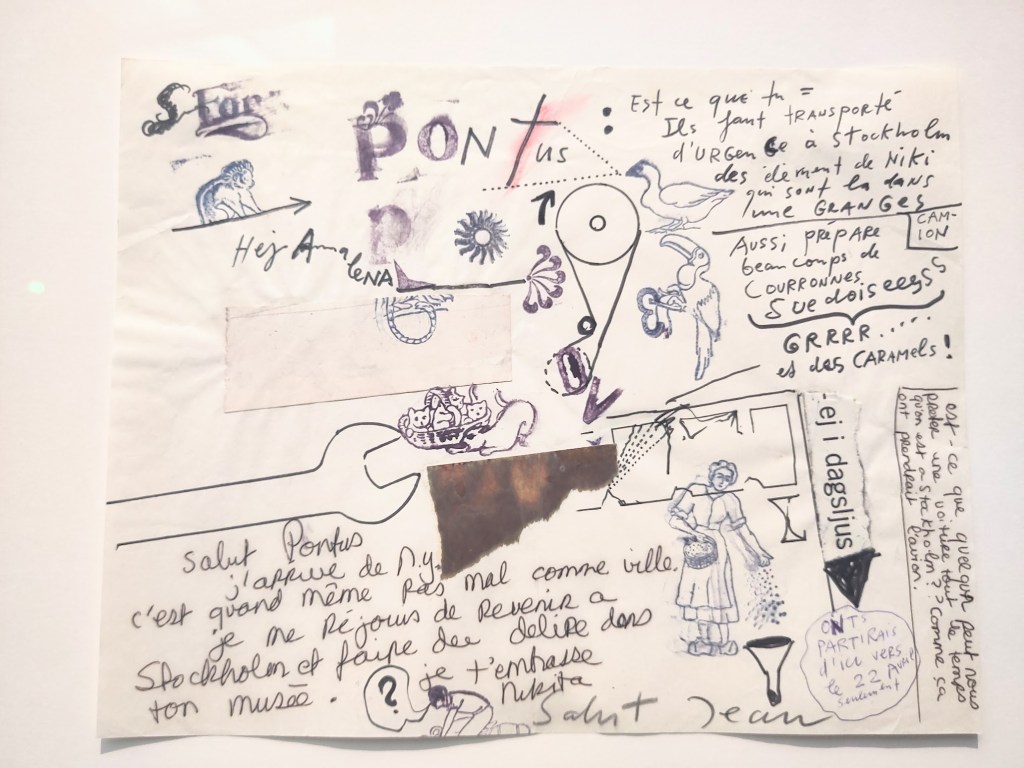 For
PONtus :
Hej AnnaLENA
P
Est ce que tu =
Ils faut TRANSPORTÉ
d'URGENCe à Stockholm
des élément de NIKI
qui sont la dans
une GRANGES
CAM-
ION
AUSSI PREPARE
beaucoups de
COURRONNES
Suedoiseees
GRRRR.....
et des CARAMELS!
- ej i dagsljus
est-ce que quelqu'un peut nous
preter une voiture tout le temps
qu'on est a stockholm?? comme ça
ont prendrait l'avion.
Salut Pontus
j'arrive de N.y.
c'est quand même pas mal comme ville
je me réjouis de revenir a
Stockholm et faire des delire dans
ton musée.
je t'embrasse
Nikita
?
Salut Jean
ONTS
PARTIRAIS
d'ICI VERS
le 22 Avril
seulement